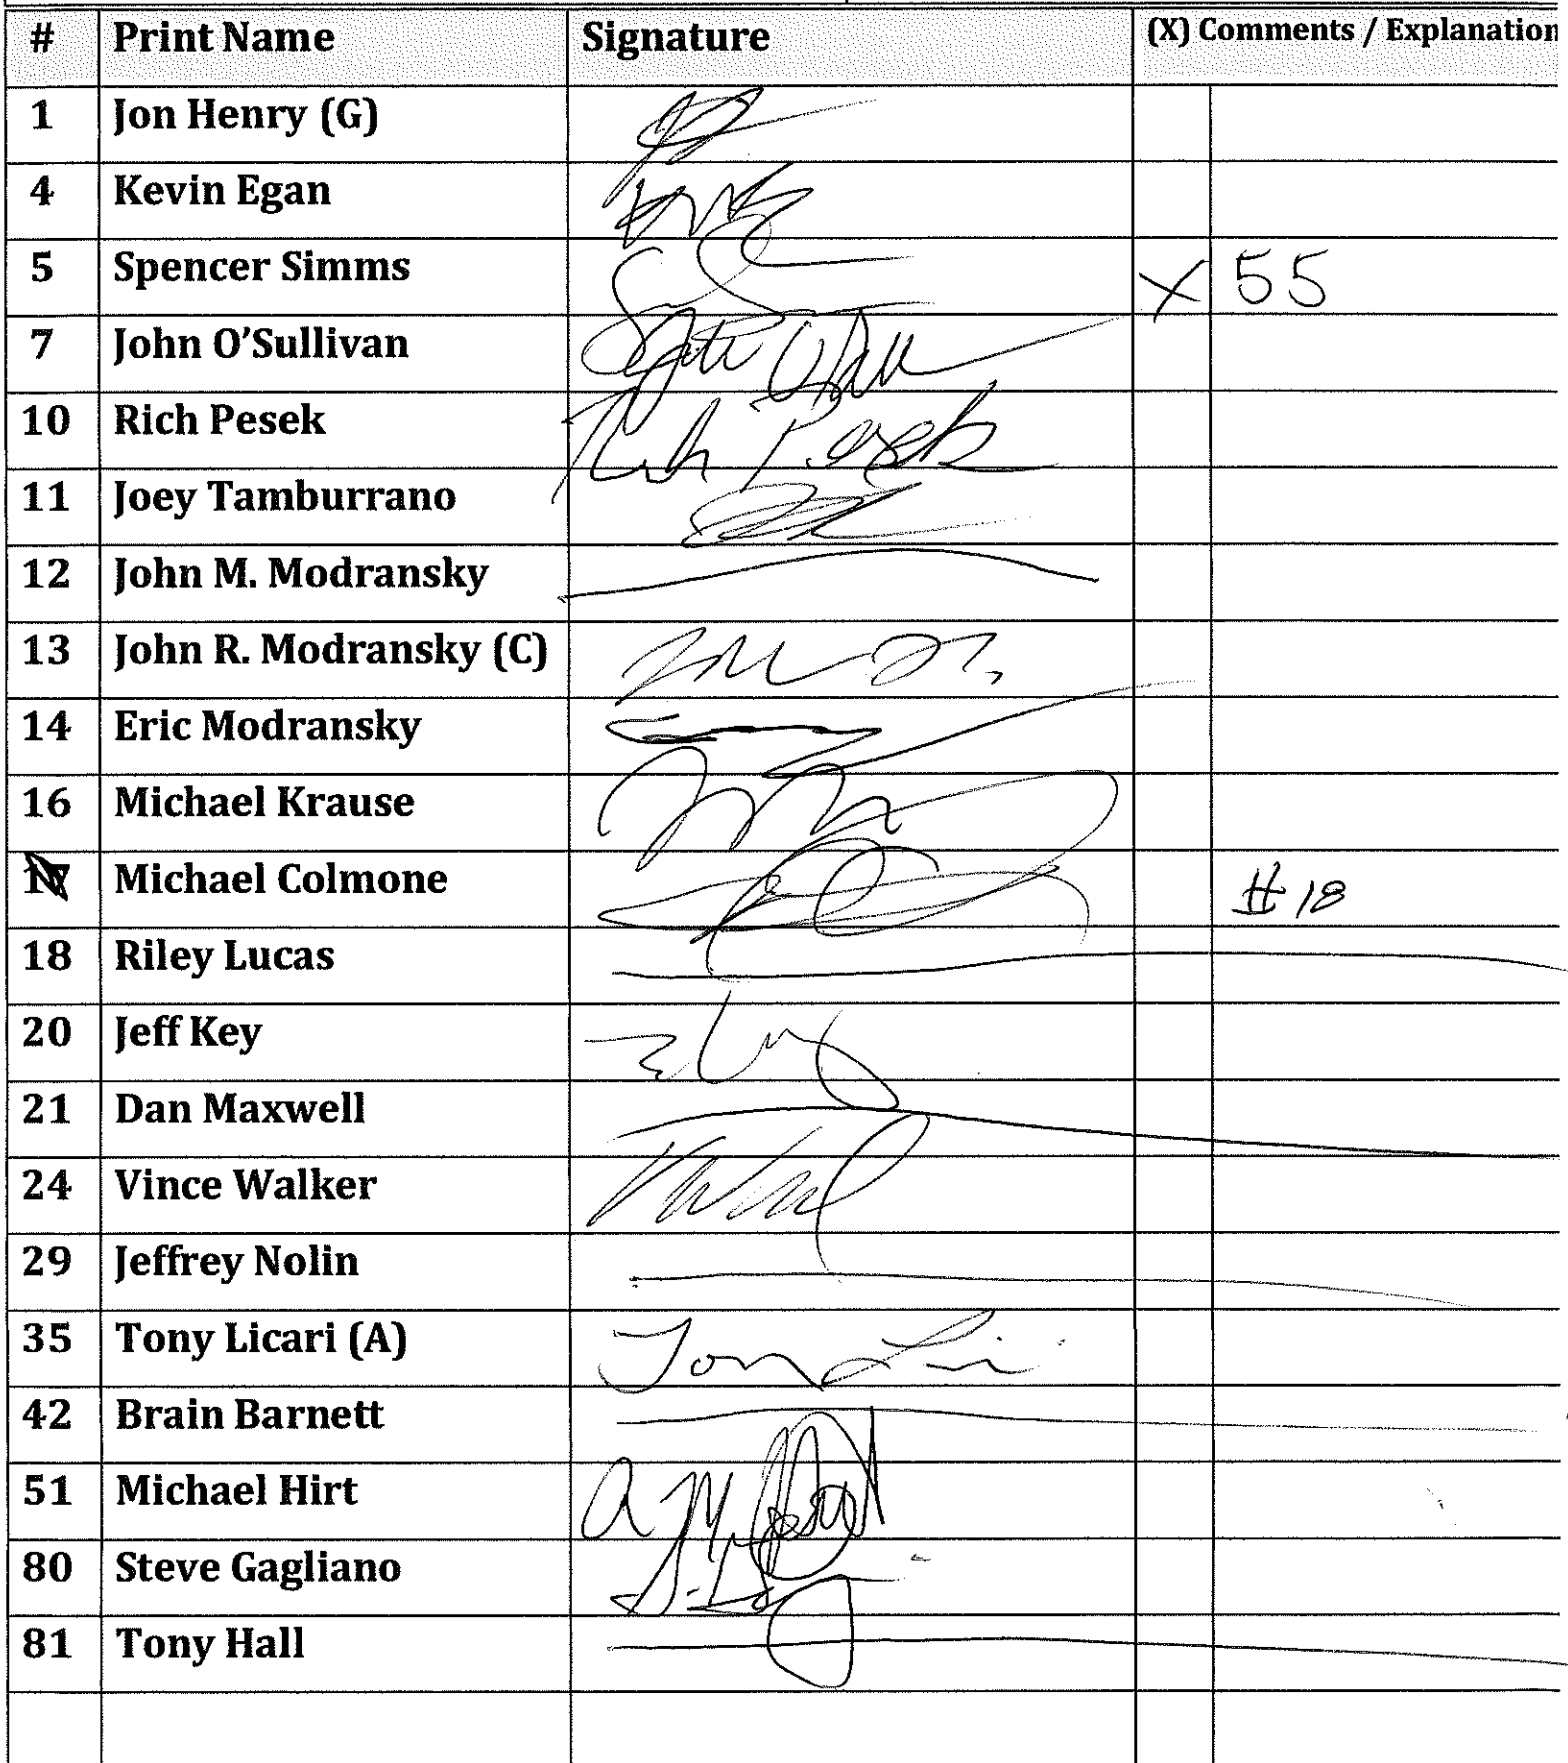 # Print Name Signature (X) Comments / Explanation
1 Jon Henry (G)
4 Kevin Egan
5 Spencer Simms X 55
7 John O'Sullivan
10 Rich Pesek Rich Pesek
11 Joey Tamburrano
12 John M. Modransky
13 John R. Modransky (C)
14 Eric Modransky
16 Michael Krause
17 Michael Colmone #18
18 Riley Lucas
20 Jeff Key
21 Dan Maxwell
24 Vince Walker
29 Jeffrey Nolin
35 Tony Licari (A)
42 Brain Barnett
51 Michael Hirt
80 Steve Gagliano
81 Tony Hall